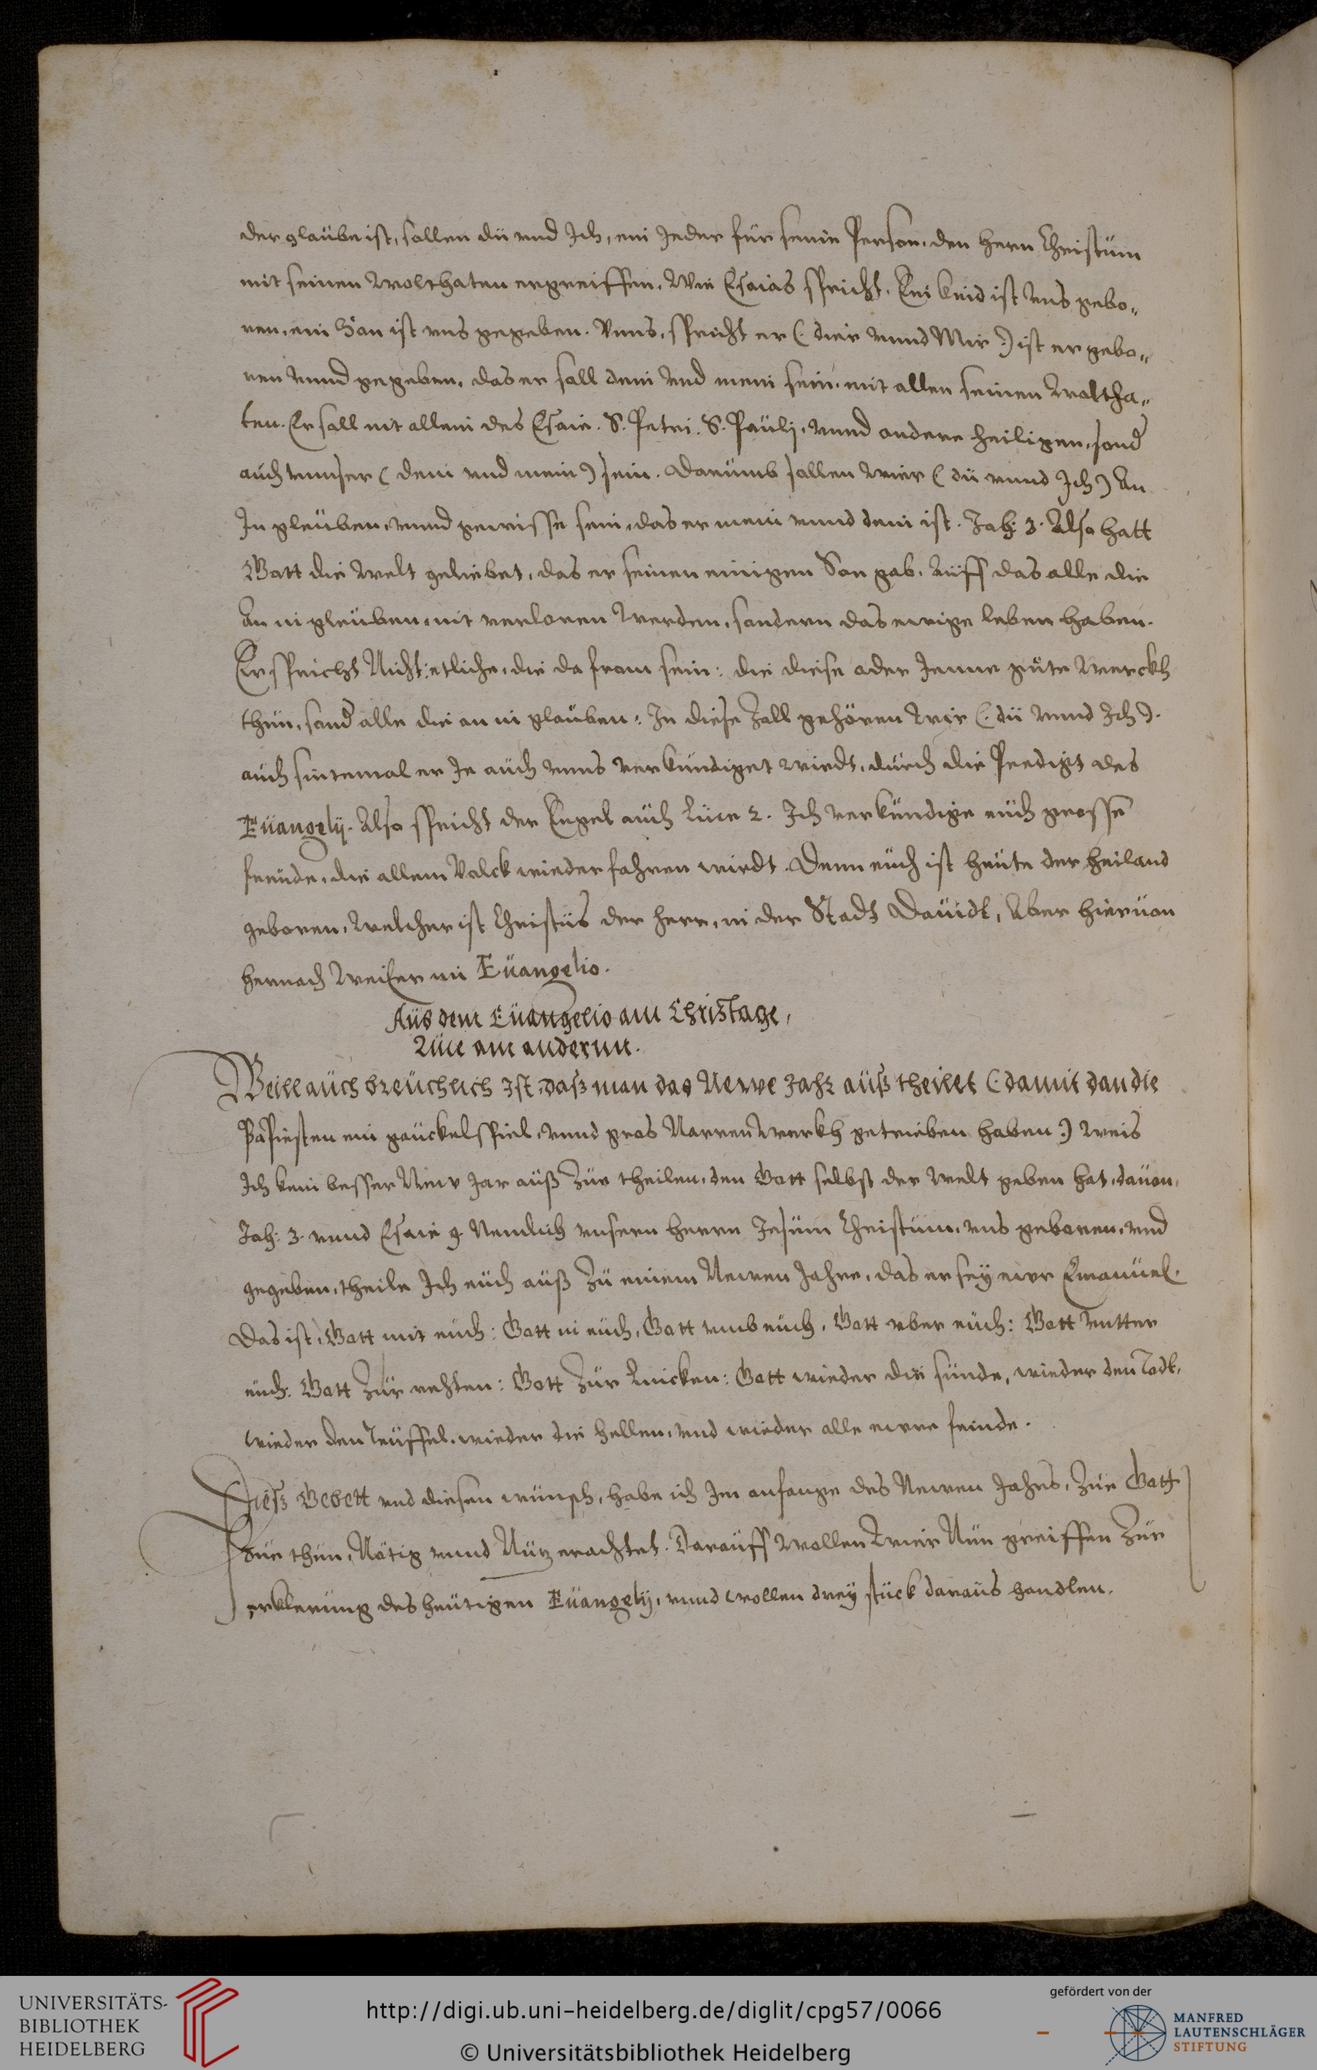 der glaübe ist, sollen dü vnd Ich, ein Jeder für seine Person, den Hern Christüm
mit seinen Wolthaten ergreiffen. Wie Esaias spricht. Ein kind ist Vns gebo„
ren, ein Son ist vns gegeben. Vnns, spricht er (: dier vnnd Mir :) ist er gebo„
ren vnnd gegeben, das er soll dein vnd mein sein, mit allen seinen Woltha„
ten. Er soll nit allein des Esaie. S. Petri. S. Paülj, vnnd andere Heiligen, sond
auch vnnser (dein vnd mein) sein. Darümb sollen Wier (dü vnnd Ich) An
In gleüben, vnnd gewisse sein, das er mein vnnd dein ist. Joh: 3. Also hatt
Gott die Welt geliebet, das er seinen einigen Son gab, Aüff das alle die
An in gleüben, nit verloren Werden, sondern das ewige leben haben.
Er spricht Nicht: etliche, die da from sein: die diese oder Jenne güte Werckh
thün, sond alle die an in glaüben: In diese Zall gehören Wir (: dü vnnd Ich).
auch sintemal er Je aüch vnns verkündiget wirdt, dürch die Predigt des
Eüangelij. Also spricht der Engel aüch Lüce 2. Ich verkündige eüch grosse
freüde, die allem Volck wiederfahren wirdt. Denn eüch ist heüte der Heiland
geboren, Welcher ist Christüs der Herr, in der Stadt Daüidt, Aber hieruon
hernach Weiter im Eüangelio.
Aüs dem Eüangelio am Christage,
Lüce am andernn.
Weill aüch breüchlich Ist, daß man das Newe Jahr aüß theilet (: damit dan die
Papisten ein gaückelspiel, vnnd gros Narren Werkh getrieben haben :) Weis
Ich kein besser New Jar aüß Zür theilen, den Gott selbst der Welt geben hat, dauon,
Joh: 3. vnnd Esaie 9. Nemlich vnsern Herrn Jesüm Christüm, vns geboren, vnd
gegeben, theile Ich eüch aüß Zü einem Newen Jahre, das er sey ewr Emanüel.
Das ist, Gott mit eüch: Gott in eüch, Gott vmb eüch, Gott vber eüch: Gott vntter
eüch: Gott Zür rechten: Gott Zür Lincken: Gott wieder die sünde, wieder den Todt,
wieder den Teüffel, wieder die Hellen, vnd wieder alle ewre feinde.
Diess Gebett vnd diesen wünsch, habe ich Im anfange des Newen Jahrs, Züe Gott
Züe thün, Nötig vnnd Nütz erachtet. Daraüff Wollen Wier Nün greiffen Zür
erklerüng des heütigen Eüangelij, vnnd wollen drey stück daraüs handlen.
UNIVERSITÄTS-
BIBLIOTHEK
HEIDELBERG
http://digi.ub.uni-heidelberg.de/diglit/cpg57/0066
© Universitätsbibliothek Heidelberg
gefördert von der
MANFRED
LAUTENSCHLÄGER
STIFTUNG